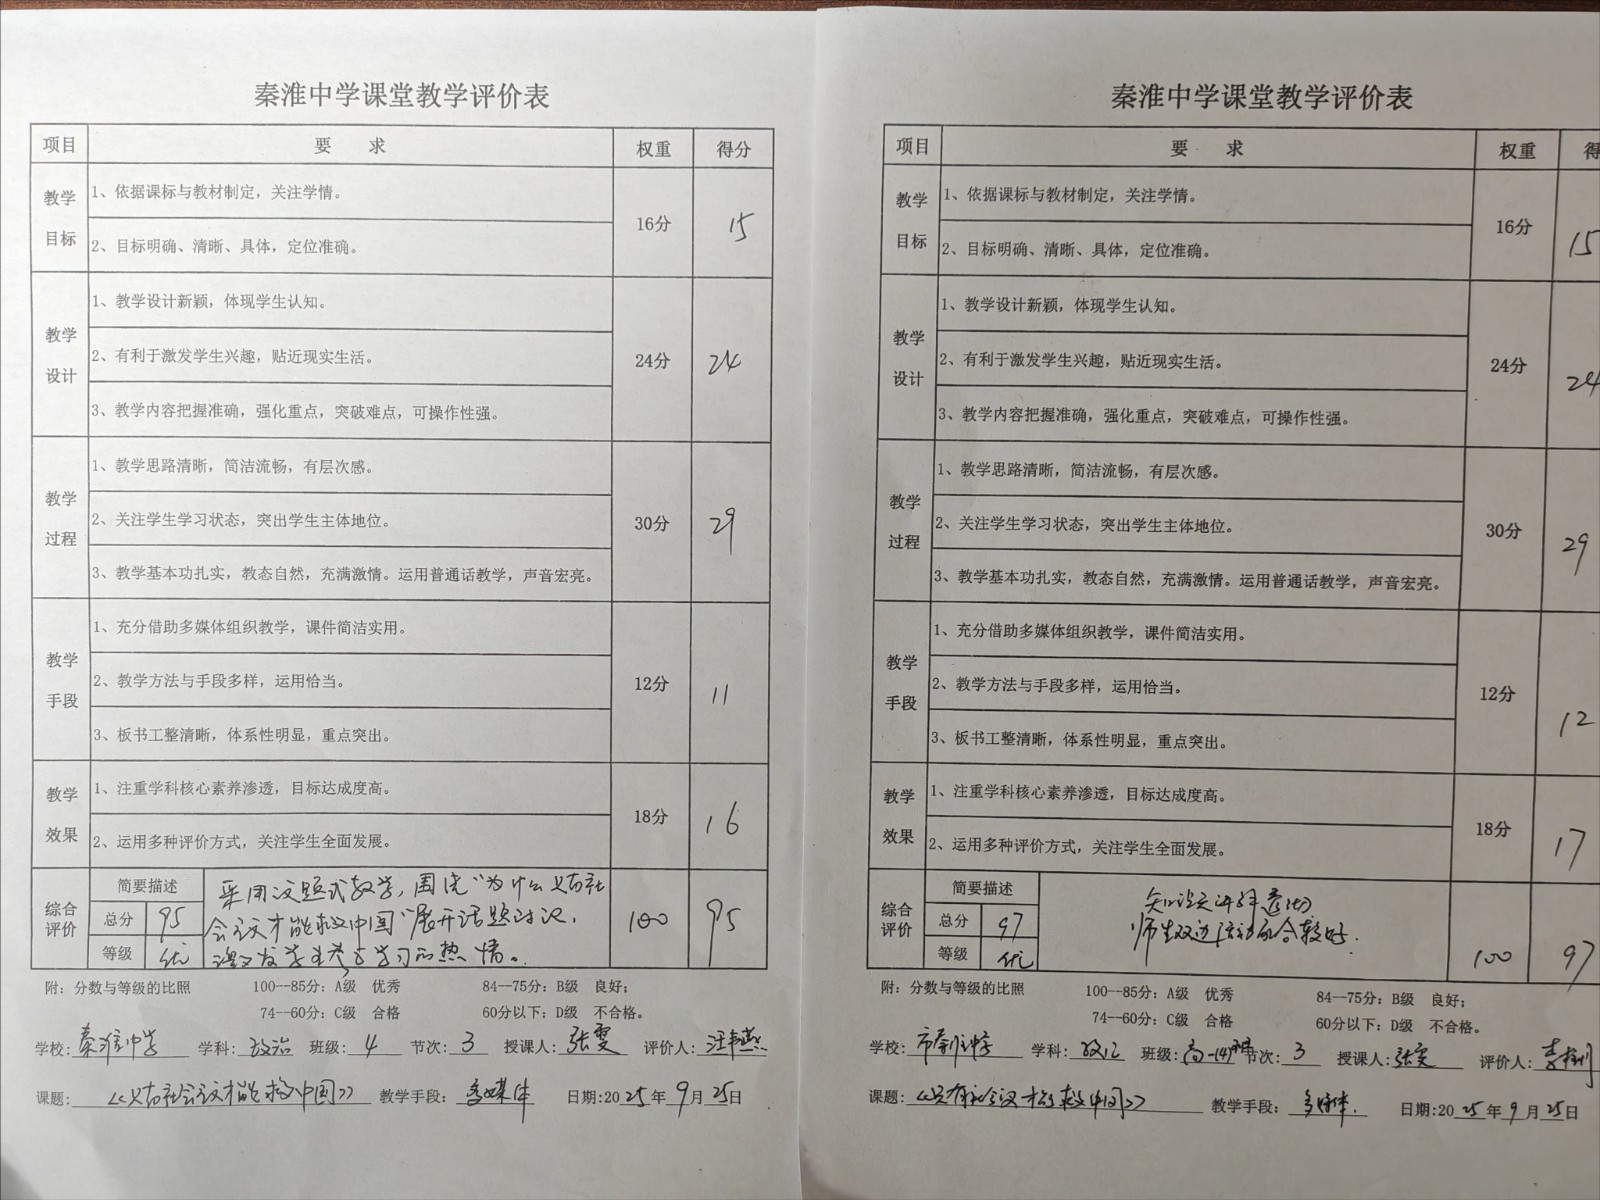 秦淮中学课堂教学评价表
项目 要 求 权重 得分
教学目标 1、依据课标与教材制定，关注学情。 16分 15
2、目标明确、清晰、具体，定位准确。
教学设计 1、教学设计新颖，体现学生认知。 24分 24
2、有利于激发学生兴趣，贴近现实生活。
3、教学内容把握准确，强化重点，突破难点，可操作性强。
教学过程 1、教学思路清晰，简洁流畅，有层次感。 30分 29
2、关注学生学习状态，突出学生主体地位。
3、教学基本功扎实，教态自然，充满激情。运用普通话教学，声音宏亮。
教学手段 1、充分借助多媒体组织教学，课件简洁实用。 12分 11
2、教学方法与手段多样，运用恰当。
3、板书工整清晰，体系性明显，重点突出。
教学效果 1、注重学科核心素养渗透，目标达成度高。 18分 16
2、运用多种评价方式，关注学生全面发展。
综合评价 简要描述 采用议题式教学，围绕“为什么只有社
总分 95 会主义才能救中国”展开话题讨论， 100 95
等级 优 激发学生参与学习的热情。
附：分数与等级的比照 100--85分：A级 优秀 84--75分：B级 良好；
74--60分：C级 合格 60分以下：D级 不合格。
学校：秦淮中学 学科：政治 班级：4 节次：3 授课人：张雯 评价人：
课题：《只有社会主义才能救中国》 教学手段：多媒体 日期：2025年9月25日
秦淮中学课堂教学评价表
项目 要 求 权重 得
教学目标 1、依据课标与教材制定，关注学情。 16分 15
2、目标明确、清晰、具体，定位准确。
教学设计 1、教学设计新颖，体现学生认知。 24分 24
2、有利于激发学生兴趣，贴近现实生活。
3、教学内容把握准确，强化重点，突破难点，可操作性强。
教学过程 1、教学思路清晰，简洁流畅，有层次感。 30分 29
2、关注学生学习状态，突出学生主体地位。
3、教学基本功扎实，教态自然，充满激情。运用普通话教学，声音宏亮。
教学手段 1、充分借助多媒体组织教学，课件简洁实用。 12分 12
2、教学方法与手段多样，运用恰当。
3、板书工整清晰，体系性明显，重点突出。
教学效果 1、注重学科核心素养渗透，目标达成度高。 18分 17
2、运用多种评价方式，关注学生全面发展。
综合评价 简要描述 知识点讲解透彻，
总分 97 师生双边活动配合较好.
等级 优 100 97
附：分数与等级的比照 100--85分：A级 优秀 84--75分：B级 良好；
74--60分：C级 合格 60分以下：D级 不合格。
学校：市秦淮中学 学科：政治 班级：高一(4) 节次：3 授课人：张雯 评价人：
课题：《只有社会主义才能救中国》 教学手段：多媒体. 日期：2025年9月25日